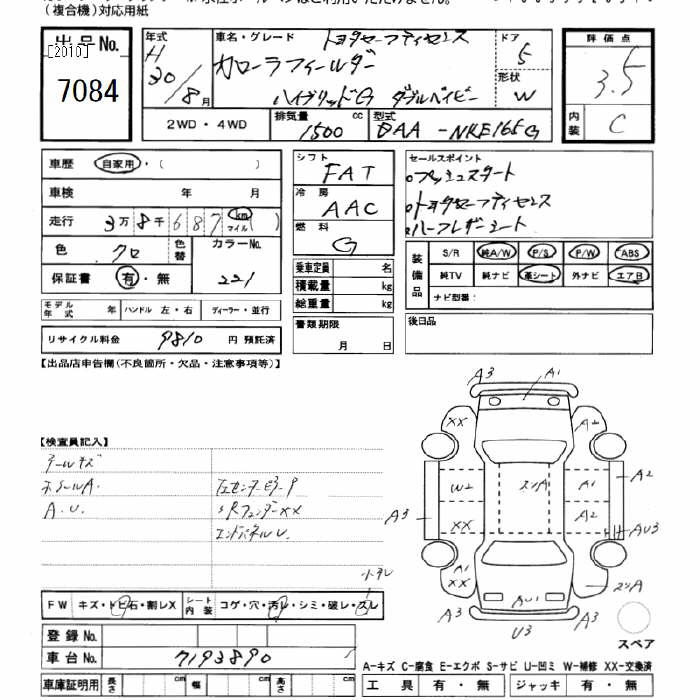 (複合機)対応用紙
出品No.
[2010]
7084
年式 H 30/8月
車名・グレード トヨタセーフティセンス
カローラフィールダー
ハイブリッドG ダブルバイビー
ドア 5
形状 W
評価点
3.5
内装 C
2WD・4WD
排気量 1500 cc
型式 DAA-NKE165G
車歴 自家用・( )
車検 年 月
走行 3万8千687 km マイル ( )
色 クロ
色替
カラーNo. 221
保証書 有・無
モデル年式 年
ハンドル 左・右
ディーラー・並行
リサイクル料金 9810 円 預託済
シフト FAT
冷房 AAC
燃料 G
乗車定員 名
積載量 kg
総重量 kg
書類期限
月 日
セールスポイント
プッシュスタート
トヨタセーフティセンス
ハーフレザーシート
装備品
S/R 純A/W P/S P/W ABS
純TV 純ナビ 革シート 外ナビ エアB
ナビ型番:
後日品
【出品店申告欄(不良箇所・欠品・注意事項等)】
【検査員記入】
ホイールA.
A.U.
エンドパネルU.
FW キズ・トビ石・割レX
シート内装 コゲ・穴・汚レ・シミ・破レ・スレ
登録No.
車台No. 7193890
車庫証明用 長さ cm 幅 cm 高さ cm
A3
A1
XX
A2
W2
A1
A2
A3
XX
A2
AU3
A1
XX
AU1
A3
U3
A3
スペア
A-キズ C-腐食 E-エクボ S-サビ U-凹ミ W-補修 XX-交換済
工具 有・無 ジャッキ 有・無